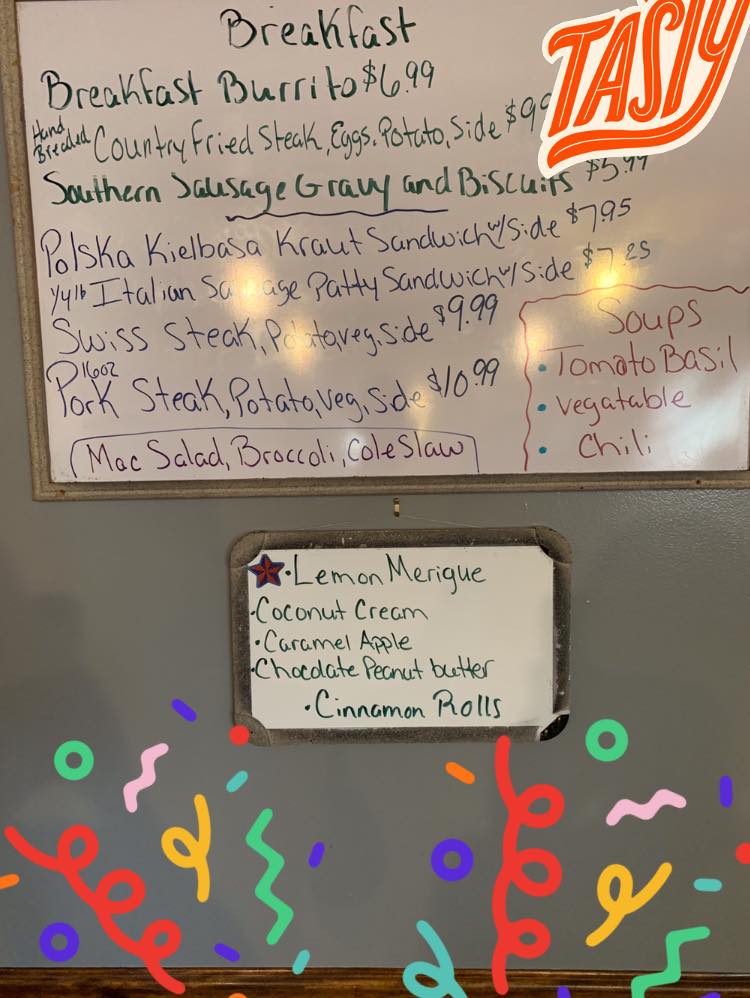 Breakfast
TASTY
Breakfast Burrito $6.99
Hand
Breaded Country Fried Steak, Eggs, Potato, Side
Southern Sausage Gravy and Biscuits $5.99
Polska Kielbasa Kraut Sandwich w/Side $7.95
1/4 lb Italian Sausage Patty Sandwich w/Side $7.25
Swiss Steak, Potato, veg, Side $9.99
16oz
Pork Steak, Potato, Veg, Side $10.99
Mac Salad, Broccoli, Cole Slaw
Soups
• Tomato Basil
• vegatable
• Chili
• Lemon Merigue
• Coconut Cream
• Caramel Apple
• Chocolate Peanut butter
• Cinnamon Rolls